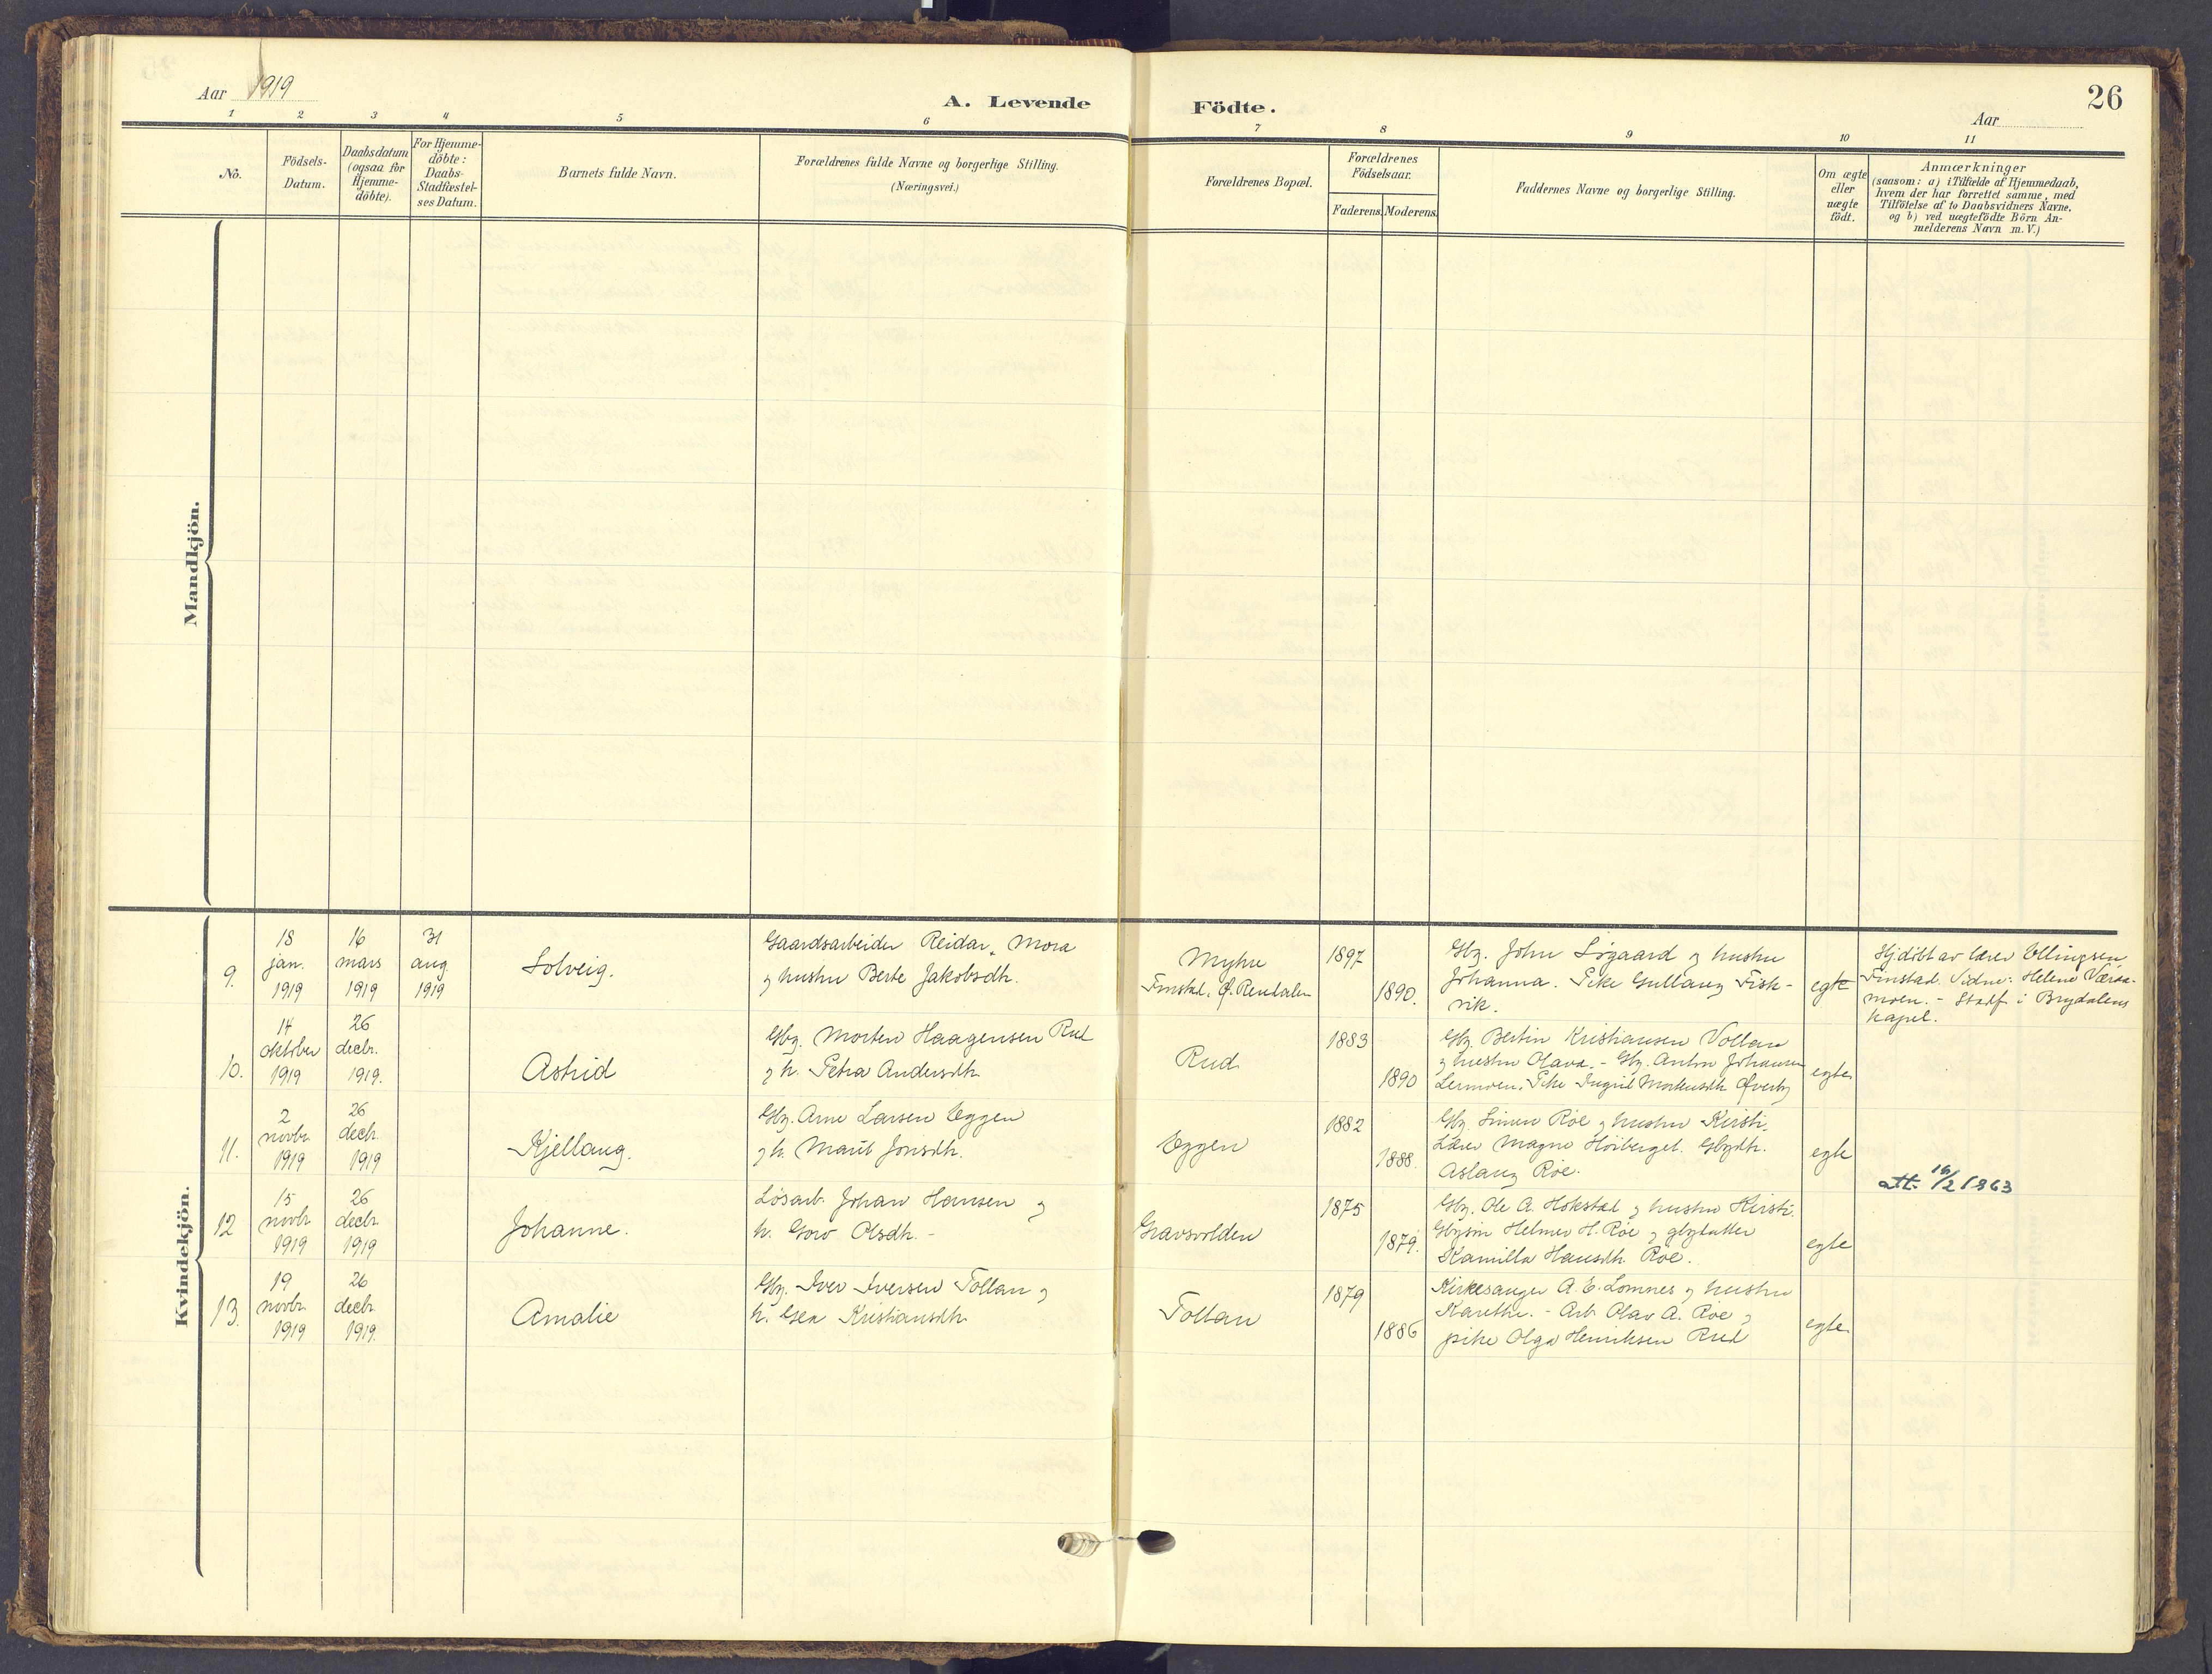 Aar 1919
A. Levende Födte.
26
Aar
1 2 3 4 5 6 7 8 9 10 11
No.
Födsels-
Datum.
Daabsdatum
(ogsaa for
Hjemme-
döbte).
For Hjemme-
döbte:
Daabs-
Stadfæstel-
ses Datum.
Barnets fulde Navn.
Forældrenes fulde Navne og borgerlige Stilling.
(Næringsvei.)
Forældrenes Bopæl.
Forældrenes
Födselsaar.
Faderens. Moderens.
Faddernes Navne og borgerlige Stilling.
Om ægte
eller
uægte
födt.
Anmærkninger
(saasom: a) i Tilfælde af Hjemmedaab,
hvem der har forrettet samme, med
Tilföielse af to Daabsvidners Navne,
og b) ved uægtefödte Börn An-
melderens Navn m. V.)
Mandkjön.
Kvindekjön.
9.
18
jan.
1919
16
mars
1919
31
aug.
1919
Solveig.
Gaardsarbeider Reidar Mora
og hustru Berte Jakobsdtr.
Myhre
Finstad, Ø. Rendalen
1897
1890.
Gbg. John Løgaard og hustru
Johanna. Pike Gullaug Fisk-
vik.
egte
Hjdöbt av lærer Ellingsen,
Finstad. Vidne: Helene Væraa-
moen. - Stadf. i Brydalens
kapel.
10.
14
oktober
1919
26
decbr.
1919.
Astrid
Gbg. Morten Haagensen Rud
og h. Petra Andersdtr.
Rud
1883
1890
Gbg. Bertin Kristiansen Vollan
og hustru Olava. - Gbg. Anton Johansen
Lermoen. Pike Ingrid Morkusdtr. Øverby
egte
11.
2
novbr.
1919
26
decbr.
1919
Kjellaug.
Gbg. Arne Larsen Eggen
og h. Marit Jonsdtr.
Eggen
1882
1888.
Gbg. Simen Röe og hustru Kirsti.
Lærer Magne Höiberget. Gbgdtr.
Aslaug Röe.
egte
att. 19/2 1963
12
15
novbr.
1919
26
decbr.
1919
Johanne.
Lösarb. Johan Hansen og
h. Goro Olsdtr. -
Gravsvolden
1875
1879.
Gbg. Ole A. Hokstad og hustru Kirsti.
Gbgsön Helmer H. Röe og gbgdatter
Kamilla Hansdtr. Röe.
egte
13.
19
novbr.
1919
26
decbr.
1919.
Amalie
Gbg. Iver Iversen Tollan og
h. Gea Kristiansdtr.
Tollan
1879
1886
Kirkesanger A. E. Lomnes og hustru
Karethe. - Arb. Olav A. Röe og
pike Olga Henriksen Rud
egte.